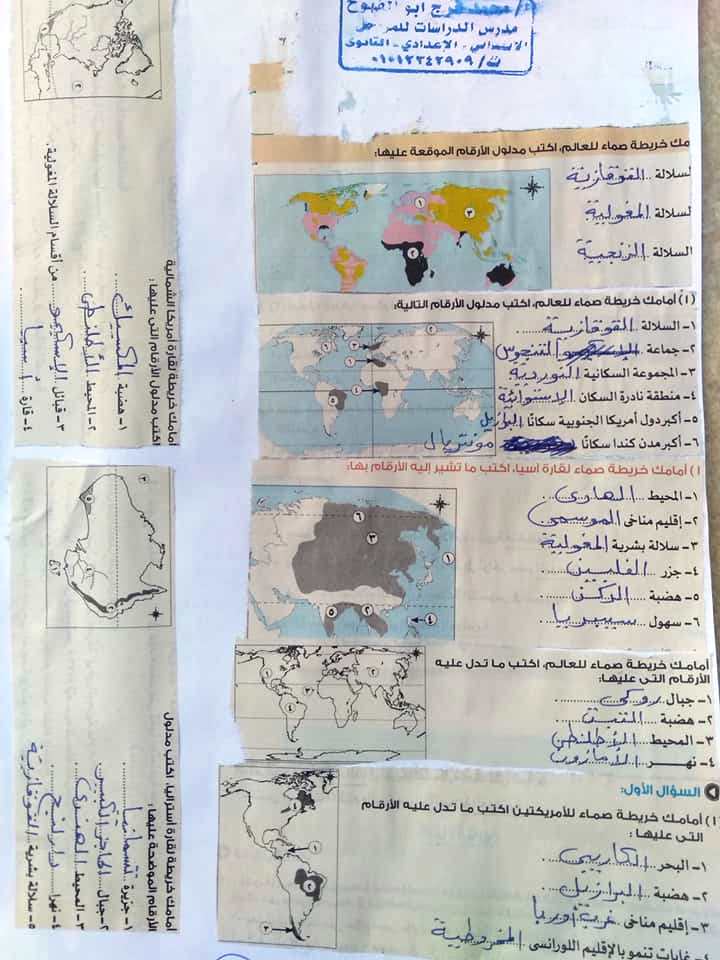 أ/ محمد فرج أبو الفتوح
مدرس الدراسات للمراحل
الابتدائي - الإعدادي - الثانوي
ت/ ٠١٠١٢٢٤٢٩٠٩
مك خريطة صماء للعالم، اكتب مدلول الأرقام الموقعة عليها:
لسلالة ..القوقازية
لسلالة ..المغولية
السلالة ..الزنجية
(١) أمامك خريطة صماء للعالم، اكتب مدلول الأرقام التالية:
١- السلالة ..القوقازية
٢- جماعة التنجوس
٣- المجموعة السكانية النوردية
٤- منطقة نادرة السكان الاستوائية
٥- أكبر دول أمريكا الجنوبية سكانًا البرازيل
٦- أكبر مدن كندا سكانًا مونتريال
١) أمامك خريطة صماء لقارة آسيا، اكتب ما تشير إليه الأرقام بها:
١- المحيط ..الهادي..
٢- إقليم مناخي الموسمي
٣- سلالة بشرية المغولية
٤- جزر ..الفلبين..
٥- هضبة ..الدكن..
٦- سهول ..سيبيريا..
أمامك خريطة صماء للعالم، اكتب ما تدل عليه
الأرقام التى عليها:
١- جبال ..روكي..
٢- هضبة ..التبت..
٣- المحيط ..الأطلنطي
٤- نهر ..الأمازون..
السؤال الأول:
١) أمامك خريطة صماء للأمريكتين اكتب ما تدل عليه الأرقام
التى عليها:
١- البحر ..الكاريبي..
٢- هضبة ..البرازيل..
٣- إقليم مناخى ..غرب أوربا
غابات تنمو بالإقليم اللورانسى ..المخروطية
أمامك خريطة لقارة أمريكا الشمالية
اكتب مدلول الأرقام التى عليها:
١- هضبة ..المكسيك..
٢- المحيط ..الأطلنطي
٣- قبائل ..الإسكيمو.. من أقسام السلالة المغولية.
٤- قارة ..آسيا..
أمامك خريطة لقارة أستراليا، اكتب مدلول
الأرقام الموضحة عليها:
١- جزيرة ..تسمانيا..
٢- جبال ..الحاجز الكبير
٣- المحيط ..الهندي..
٤- نهرا ..دارلنج..
٥- سلالة بشرية ..القوقازية